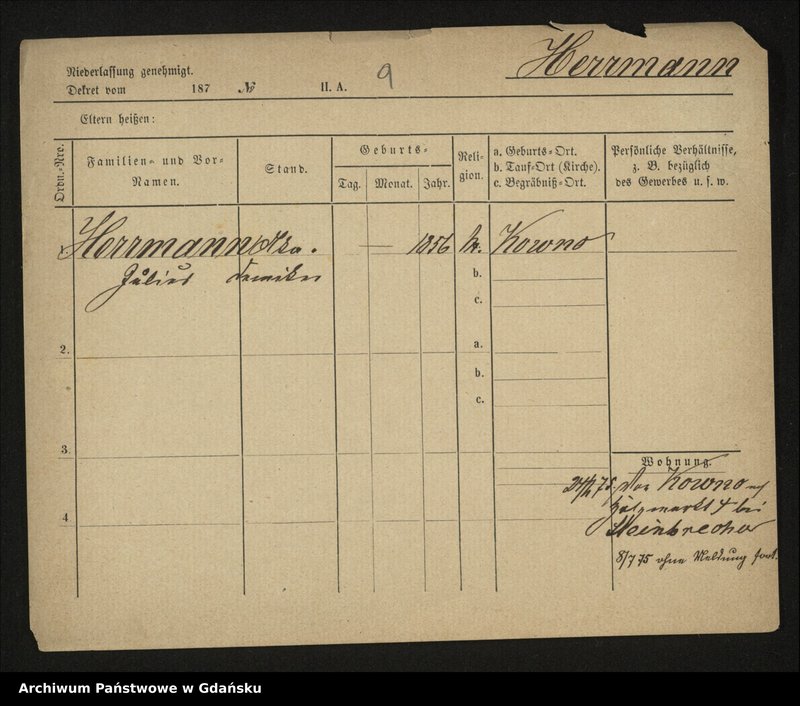 Herrmann
Niederlassung genehmigt.
Dekret vom 187 № II. A. 9
Eltern heißen:
Ordn.-Nro.
Familien- und Vor-
Namen.
Stand.
Geburts-
Tag. Monat. Jahr.
Reli-
gion.
a. Geburts-Ort.
b. Tauf-Ort (Kirche).
c. Begräbniß-Ort.
Persönliche Verhältnisse,
z. B. bezüglich
des Gewerbes u. s. w.
Herrmann — 1856 Kowno
Julius
b.
c.
2. a.
b.
c.
3.
4
Wohnung.
75 Von Kowno
4 bei
Steinbrecher
8/7 75 ohne Meldung fort.
Archiwum Państwowe w Gdańsku